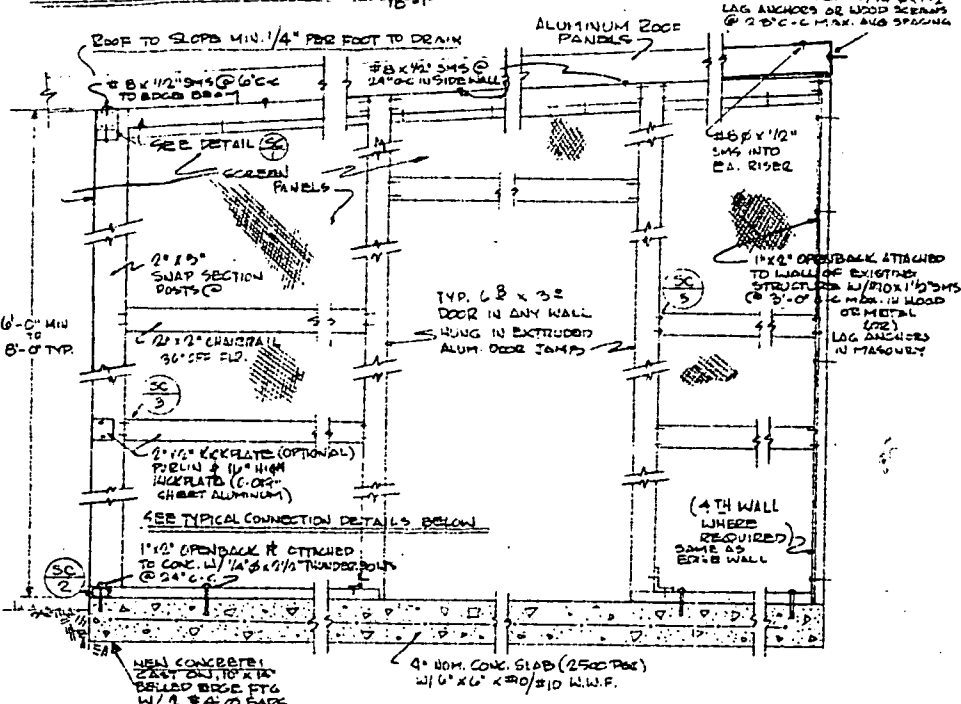 LAG ANCHORS OR WOOD SCREWS
@ 28" C-C MAX. AVG SPACING
ALUMINUM ROOF
PANELS
ROOF TO SLOPE MIN. 1/4" PER FOOT TO DRAIN
#8 x 1/2" SMS @ 6" C-C
TO EDGE BEAM
#8 x 1/2" SMS @
24" O-C IN SIDE WALL
SEE DETAIL SC 1
SCREEN
PANELS
#8 Ø x 1/2"
SMS INTO
EA. RISER
2" x 3"
SNAP SECTION
POSTS @
1" x 2" OPENBACK ATTACHED
TO WALL OF EXISTING
STRUCTURE W/ #10 x 1 1/2" SMS
@ 3'-0" C-C MAX. IN WOOD
OR METAL
(OR)
LAG ANCHORS
IN MASONRY
SC
5
TYP. 6⁸ x 3⁰
DOOR IN ANY WALL
HUNG IN EXTRUDED
ALUM. DOOR JAMBS
6'-0" MIN
TO
8'-0" TYP.
2" x 2" CHAIRRAIL
36" OFF FLR.
SC
3
2" x 2" KICKPLATE (OPTIONAL)
PURLIN & 16" HIGH
KICKPLATE (0.019"
SHEET ALUMINUM)
SEE TYPICAL CONNECTION DETAILS BELOW
(4TH WALL
WHERE
REQUIRED)
SAME AS
EDGE WALL
1" x 2" OPENBACK ATTACHED
TO CONC. W/ 1/4" Ø x 2 1/2" THUNDER BOLTS
@ 24" C-C
SC
2
NEW CONCRETE:
CAST ON, 10" x
BELLED EDGE FTG
W/ 2 #4 Ø BARS
4" NOM. CONC. SLAB (2500 PSI)
W/ 6" x 6" x #10/#10 W.W.F.